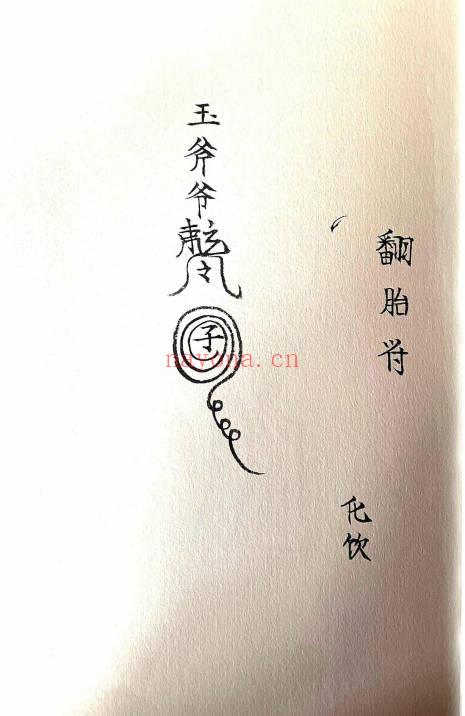 翻胎符
化饮
玉斧爷
子
nayona.cn